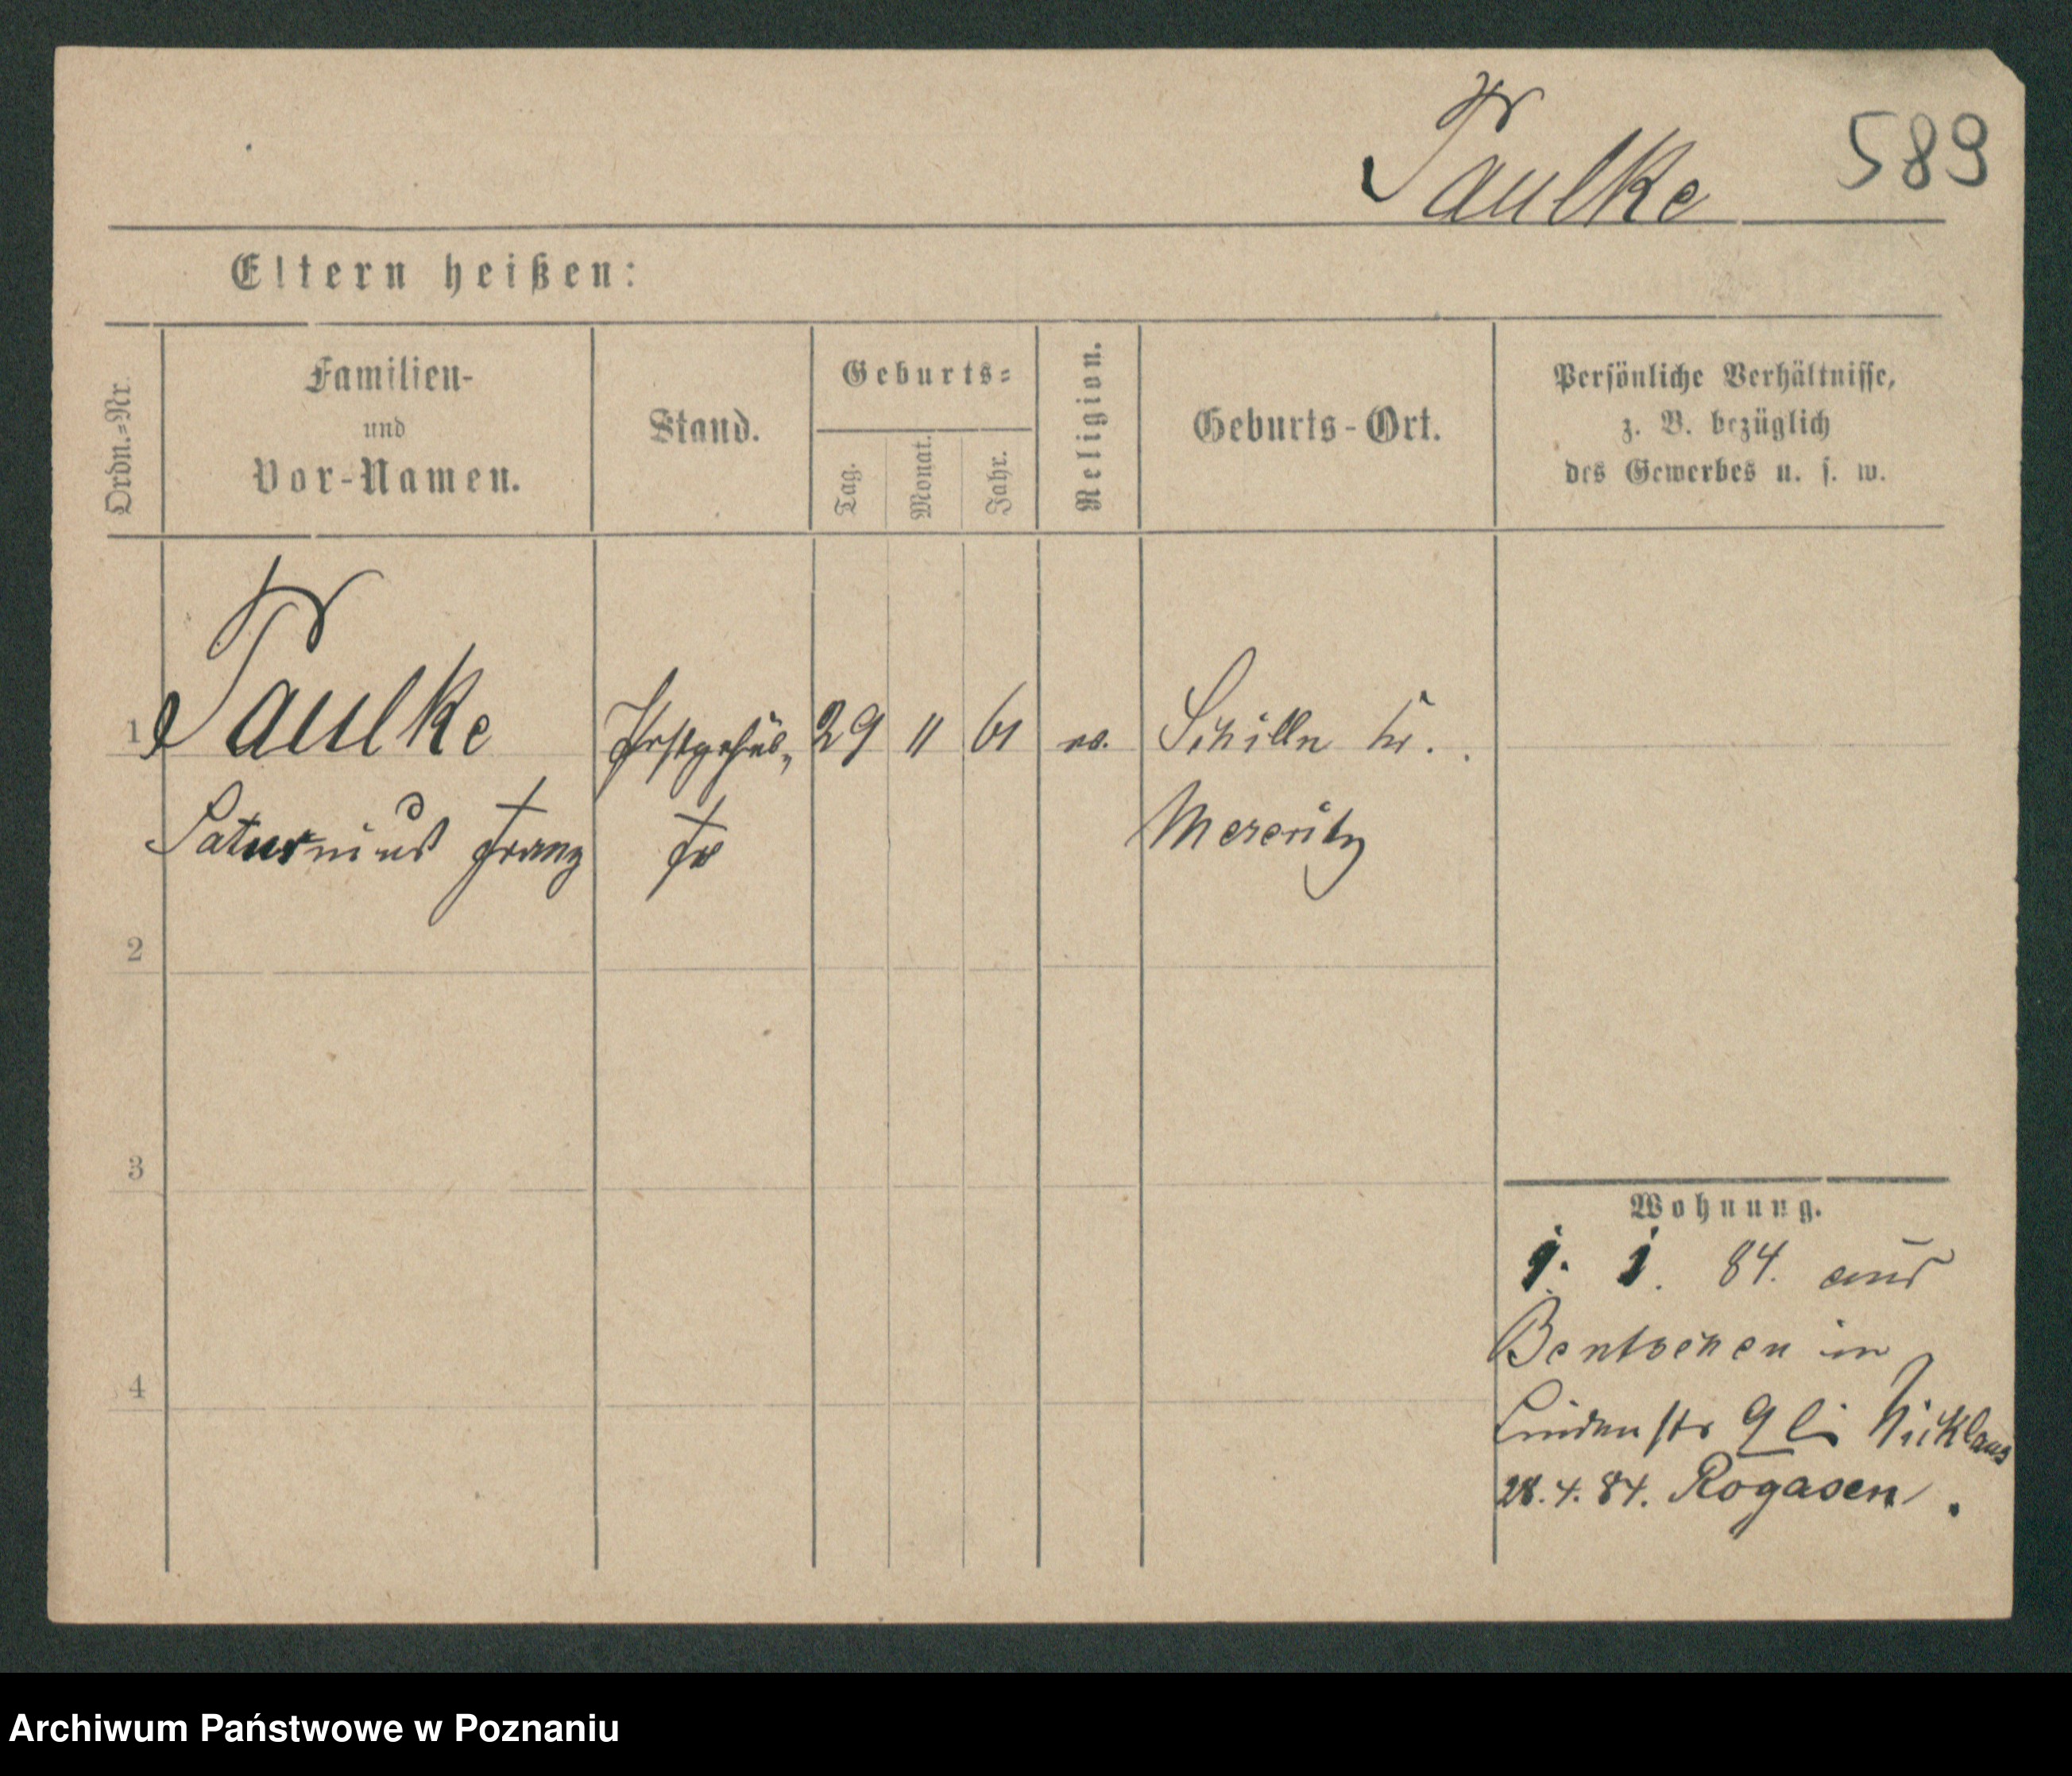 Paulke 589
Eltern heißen:
Ordn.=Nr.
Familien-
und
Vor-Namen.
Stand.
Geburts=
Tag.
Monat.
Jahr.
Religion.
Geburts-Ort.
Persönliche Verhältnisse,
z. B. bezüglich
des Gewerbes u. s. w.
1 Paulke Postgehül- 29 11 61 ev. Schilln Kr.
Saturnius Franz fe Meseritz
2
3
4
Wohnung.
1. 1. 84. aus
Bentschen in
Lindenstr 9 bei Nicklaus
28. 4. 84. Rogasen.
Archiwum Państwowe w Poznaniu